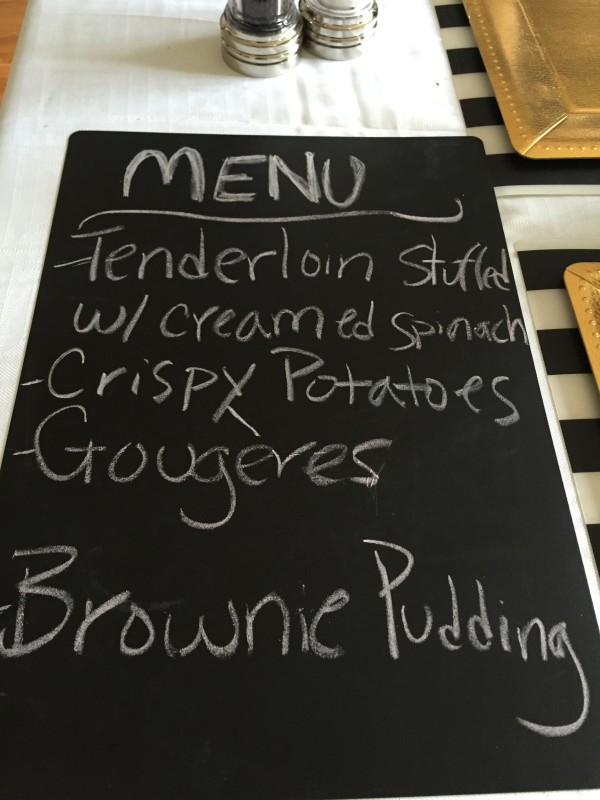 MENU
-Tenderloin Stuffed
w/ creamed spinach
-Crispy Potatoes
-Gougeres
-Brownie Pudding